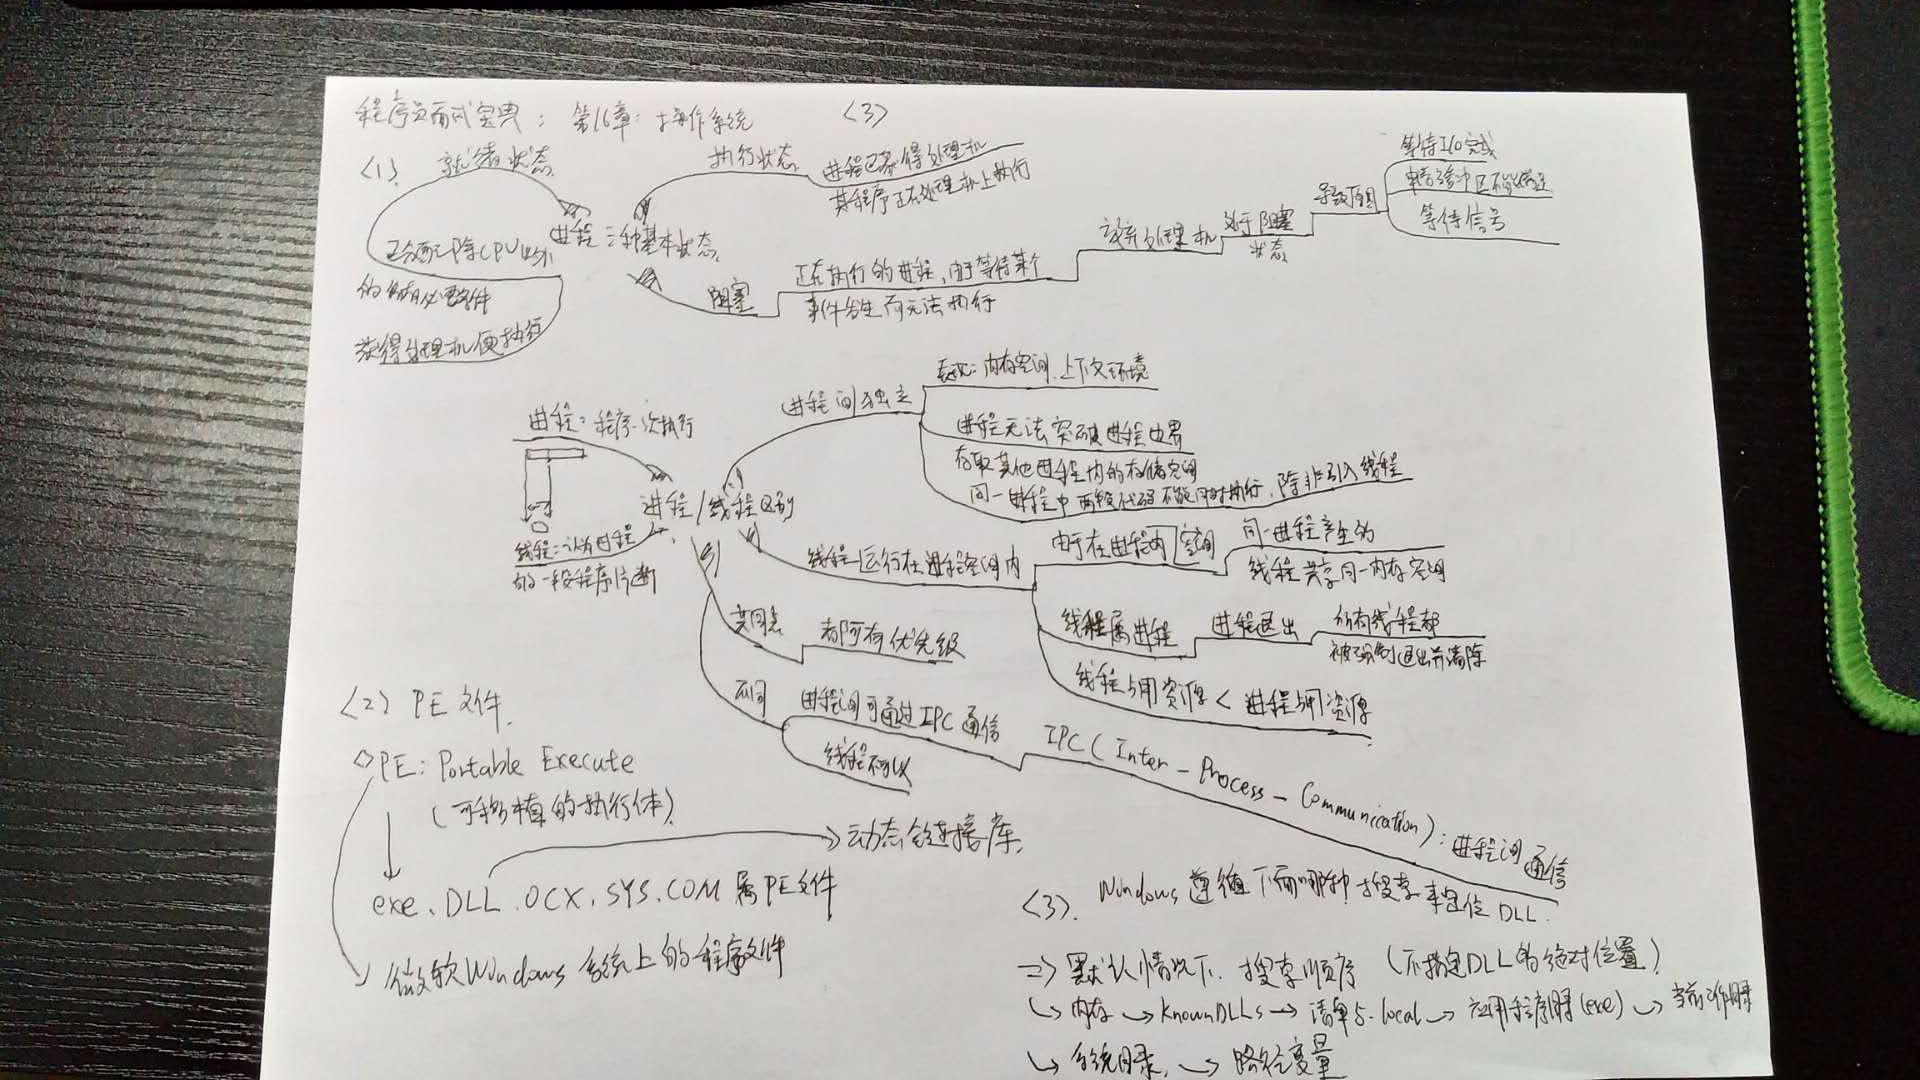 程序员面试宝典：第16章：操作系统
<3>
<1>
就绪状态
已分配了除CPU以外
的所有必要条件
获得处理机便执行
进程三种基本状态
执行状态
进程已获得处理机
其程序正在处理机上执行
阻塞
正在执行的进程，由于等待某个
事件发生而无法执行
放弃处理机
处于阻塞
状态
导致原因
等待I/O完成
申请缓冲区不能满足
等待信号
进程：程序一次执行
线程：认为进程
的一段程序片断
进程/线程区别
进程间独立
表现：内存空间、上下文环境
进程无法突破进程边界
存取其他进程内的存储空间
同一进程中两段代码不能同时执行，除非引入线程
线程运行在进程空间内
由于在进程内空间
同一进程产生的
线程共享同一内存空间
线程属进程
进程退出
所有线程都
被强制退出并清除
线程占用资源 < 进程占用资源
共同点
都可有优先级
不同
进程间可通过IPC通信
线程不可以
IPC (Inter-Process-Communication)：进程间通信
<2> PE文件.
PE: Portable Execute
(可移植的执行体)
动态链接库.
exe、DLL.OCX.SYS.COM属PE文件
微软Windows系统上的程序文件
<3>. Windows遵循下面哪种搜索来定位DLL.
=> 默认情况下.搜索顺序 (不指定DLL的绝对位置)
↳ 内存 → KnownDLLs → 清单与.local → 应用程序目录(exe) → 当前工作目录
↳ 系统目录. → 路径变量